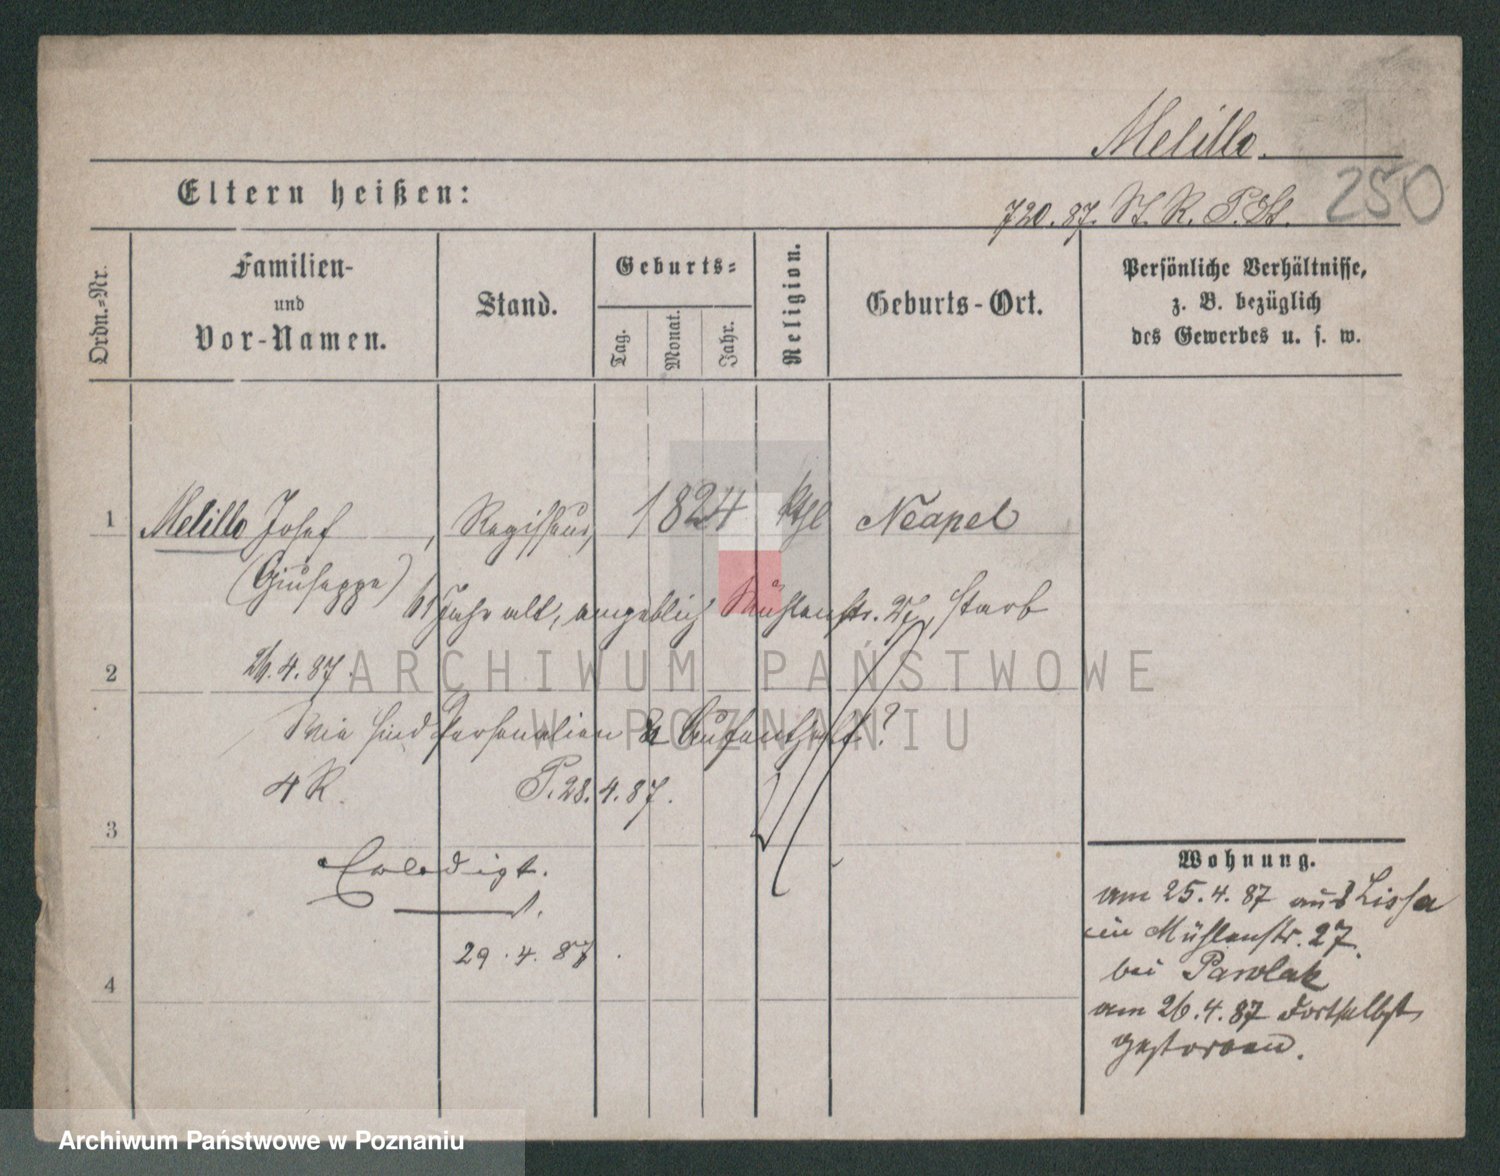 Melillo.
Eltern heißen:
720. 87. St. R. P. St.
250
Ordn.-Nr.
Familien-
und
Vor-Namen.
Stand.
Geburts-
Tag.
Monat.
Jahr.
Religion.
Geburts-Ort.
Persönliche Verhältnisse,
z. B. bezüglich
des Gewerbes u. s. w.
1 Melillo Josef, Regisseur, 1824 kthl Neapel
(Giuseppe)
Jahr alt, angeblich Mühlenstr. 27, starb
2 26. 4. 87.
Wie sind Personalien & Aufenthalt?
4 R. P. 28. 4. 87.
3
Erledigt.
29. 4. 87.
4
Wohnung.
am 25. 4. 87 aus Lissa
in Mühlenstr. 27.
bei Pawlak
am 26. 4. 87 dortselbst
gestorben.
ARCHIWUM PAŃSTWOWE
W POZNANIU
Archiwum Państwowe w Poznaniu